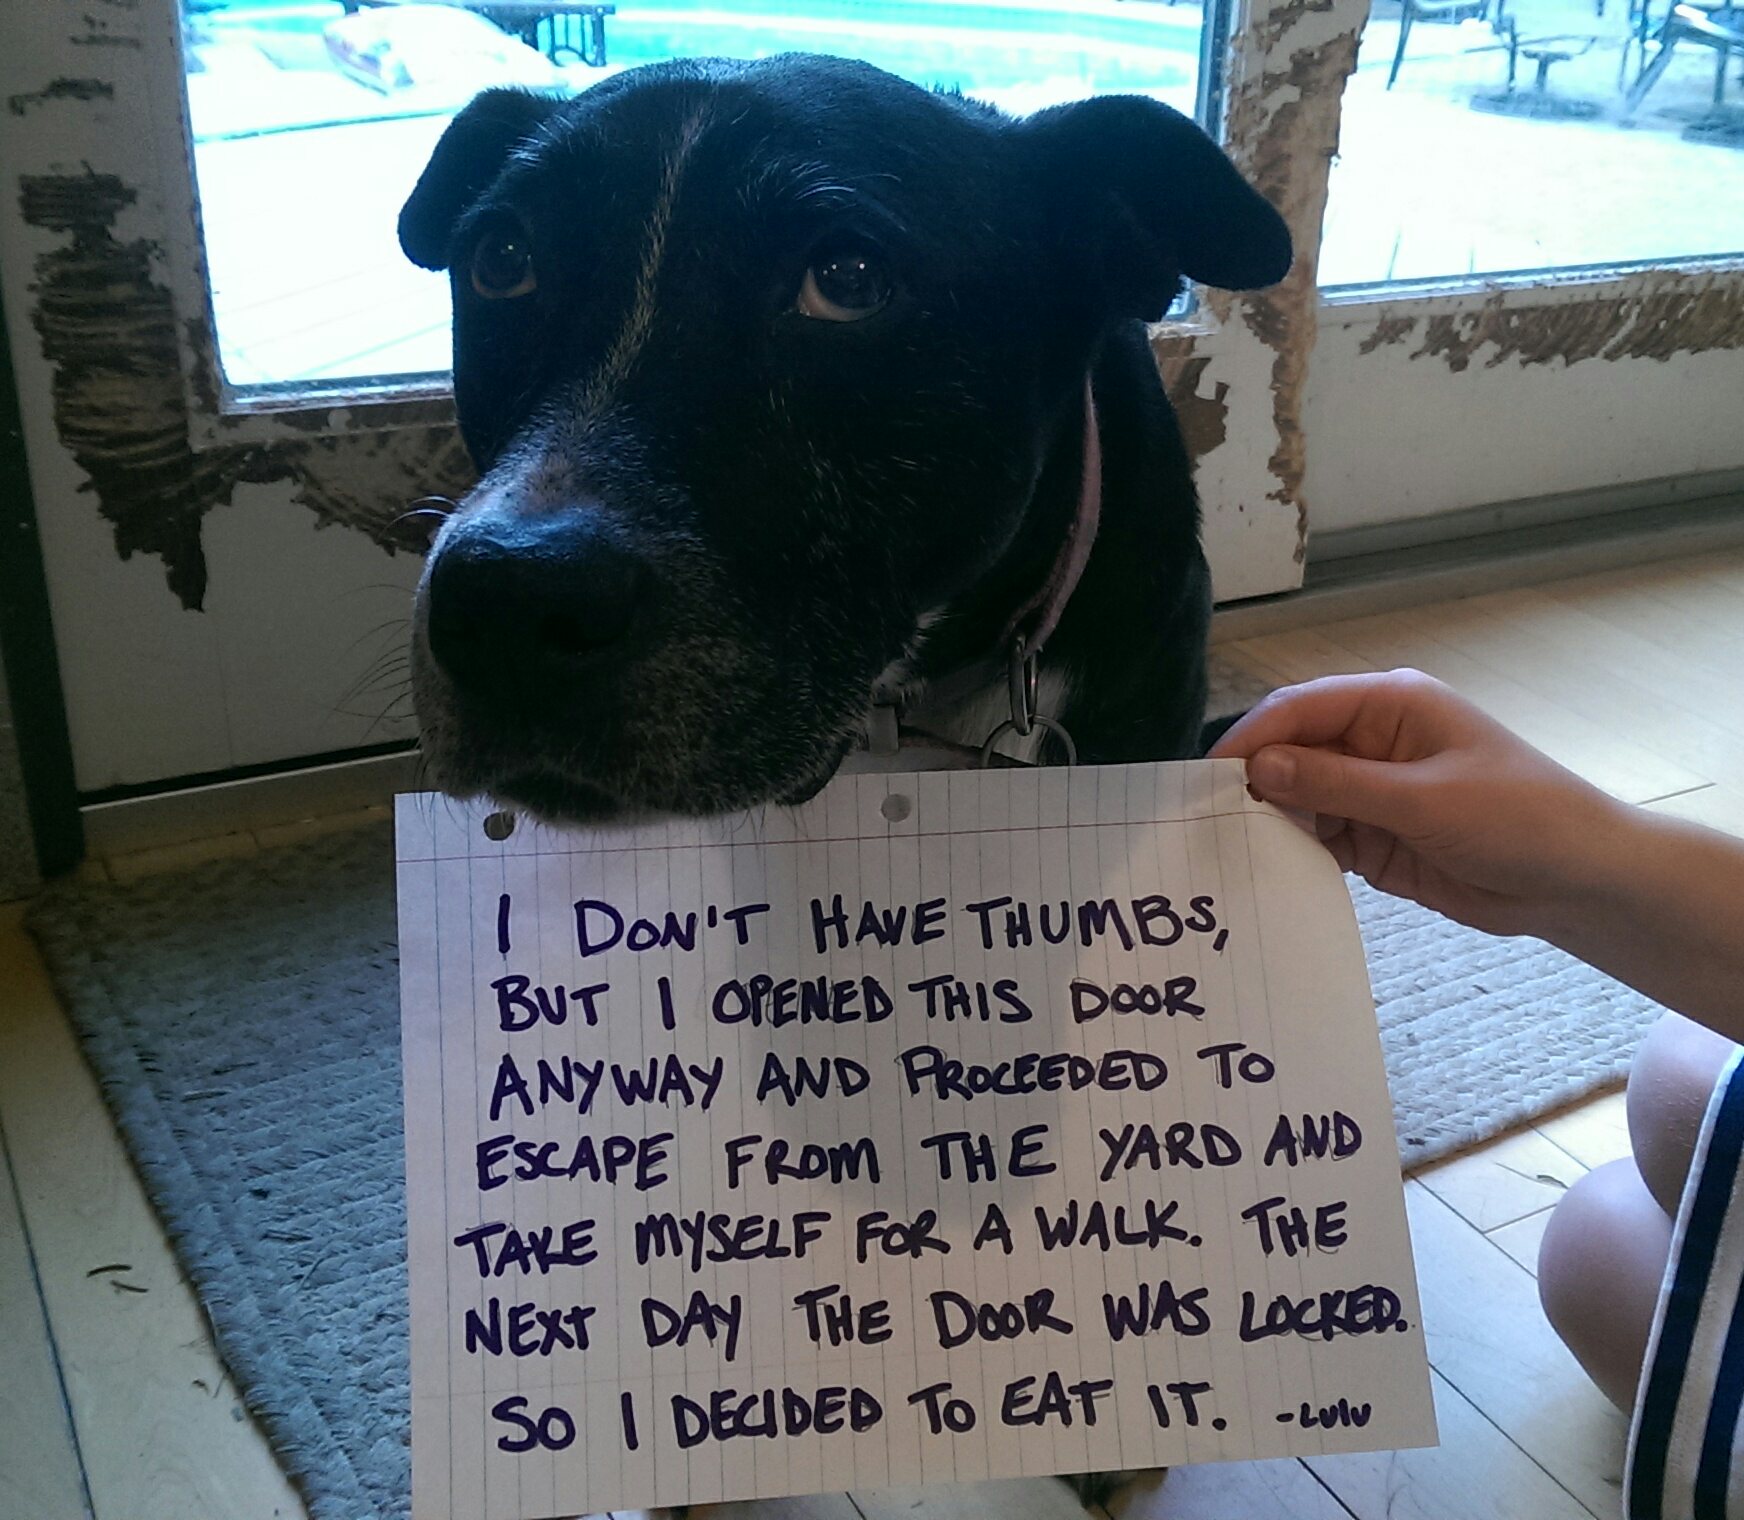 I DON'T HAVE THUMBS,
BUT I OPENED THIS DOOR
ANYWAY AND PROCEEDED TO
ESCAPE FROM THE YARD AND
TAKE MYSELF FOR A WALK. THE
NEXT DAY THE DOOR WAS LOCKED.
SO I DECIDED TO EAT IT. -LULU